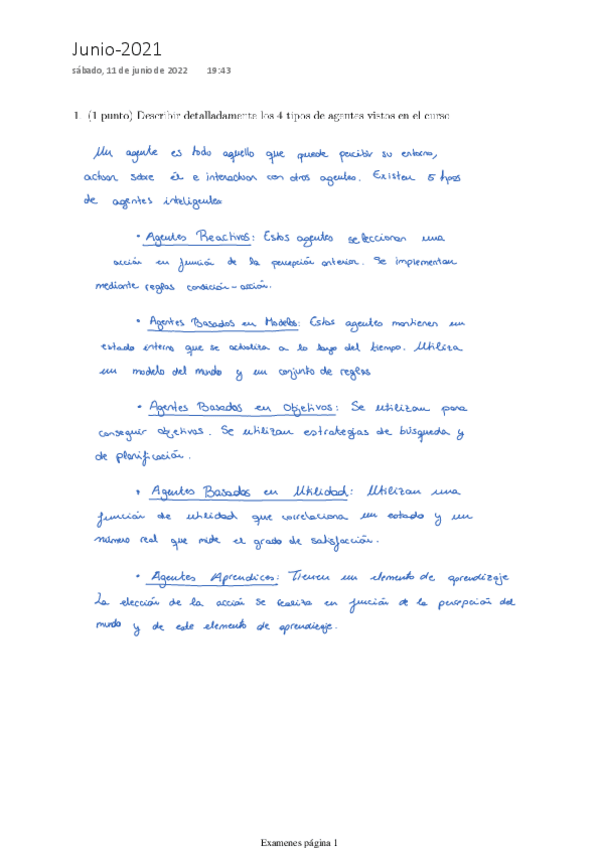 Junio-2021
sábado, 11 de junio de 2022 19:43
1. (1 punto) Describir detalladamente los 4 tipos de agentes vistos en el curso
Un agente es todo aquello que puede percibir su entorno,
actuar sobre él e interactuar con otros agentes. Existen 5 tipos
de agentes inteligentes
• Agentes Reactivos: Estos agentes seleccionan una
acción en función de la percepción anterior. Se implementan
mediante reglas condición-acción.
• Agentes Basados en Modelos: Estos agentes mantienen un
estado interno que se actualiza a lo largo del tiempo. Utiliza
un modelo del mundo y un conjunto de reglas
• Agentes Basados en Objetivos: Se utilizan para
conseguir objetivos. Se utilizan estrategias de búsqueda y
de planificación.
• Agentes Basados en Utilidad: Utilizan una
función de utilidad que correlaciona un estado y un
número real que mide el grado de satisfacción.
• Agentes Aprendices: Tienen un elemento de aprendizaje
La elección de la acción se realiza en función de la percepción del
mundo y de este elemento de aprendizaje.
Examenes página 1